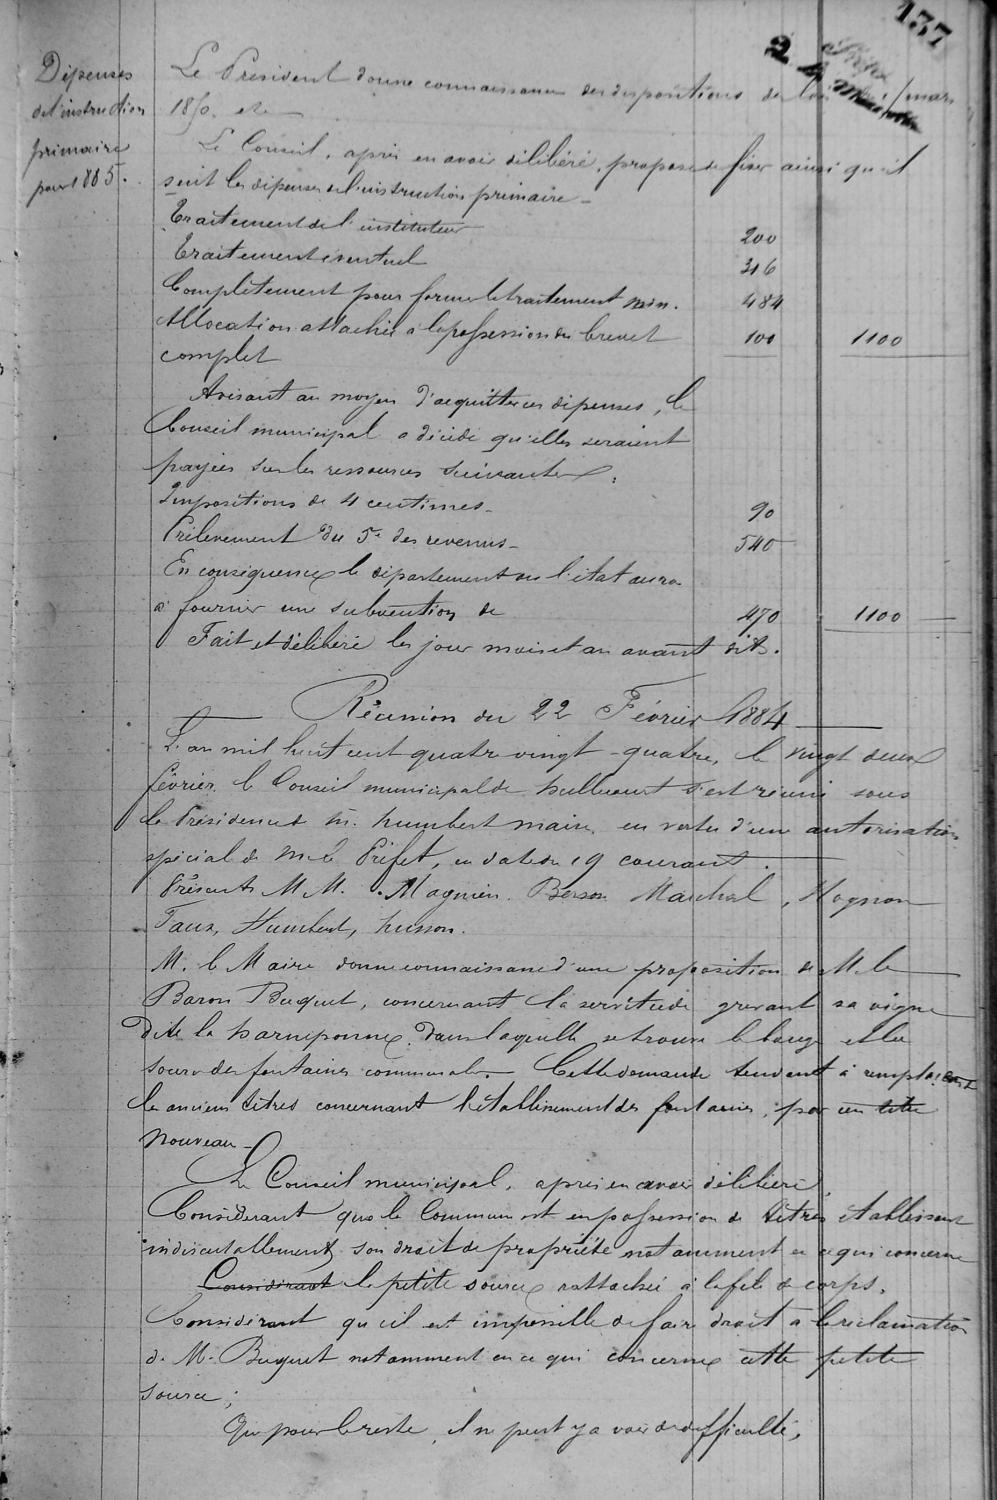 137
Dépenses
de l'instruction
primaire
pour 1885.
Le Président donne connaissance des dispositions de loi mars
1850. etc
Le Conseil, après en avoir délibéré, propose de fixer ainsi qu'il
suit les dépenses de l'instruction primaire -
Traitement de l'instituteur 200
Traitement éventuel 316
Complètement pour former le traitement min. 484
Allocation attachée à la possession du brevet 100 1100
complet
Avisant au moyen d'acquitter ces dépenses, le
Conseil municipal a décidé qu'elles seraient
payées sur les ressources suivantes :
Impositions de 4 centimes - 90
Prélèvement du 5e des revenus - 540
En conséquence le département ou l'état aura
à fournir une subvention de 470 1100
Fait et délibéré les jour mois et an avant dits.
Réunion du 22 Février 1884
L'an mil huit cent quatre vingt-quatre, le vingt deux
février le Conseil municipal de s'est réuni sous
la Présidence de M. Humbert maire, en vertu d'une autorisation
spécial de M. le Préfet, en date du 19 courant.
Présents MM. Magnien. Maréchal, Hognon
Humbert, husson.
M. le Maire donne connaissance d'une proposition de M. le
Baron Buquet, concernant la servitude grevant sa vigne
dite la dans laquelle se trouve et la
source des fontaines communales. Cette demande tendant à remplacer
les anciens titres concernant l'établissement des fontaines, par un titre
nouveau -
Le Conseil municipal, après en avoir délibéré,
Considérant que la Commune est en possession de titres établissant
son droit de propriété notamment en ce qui concerne
Considérant la petite source rattachée à la file de corps.
Considérant qu'il est impossible de faire droit à la réclamation
de M. Buquet notamment en ce qui concerne cette petite
source ;
Que pour le reste, il ne peut y avoir de difficulté,